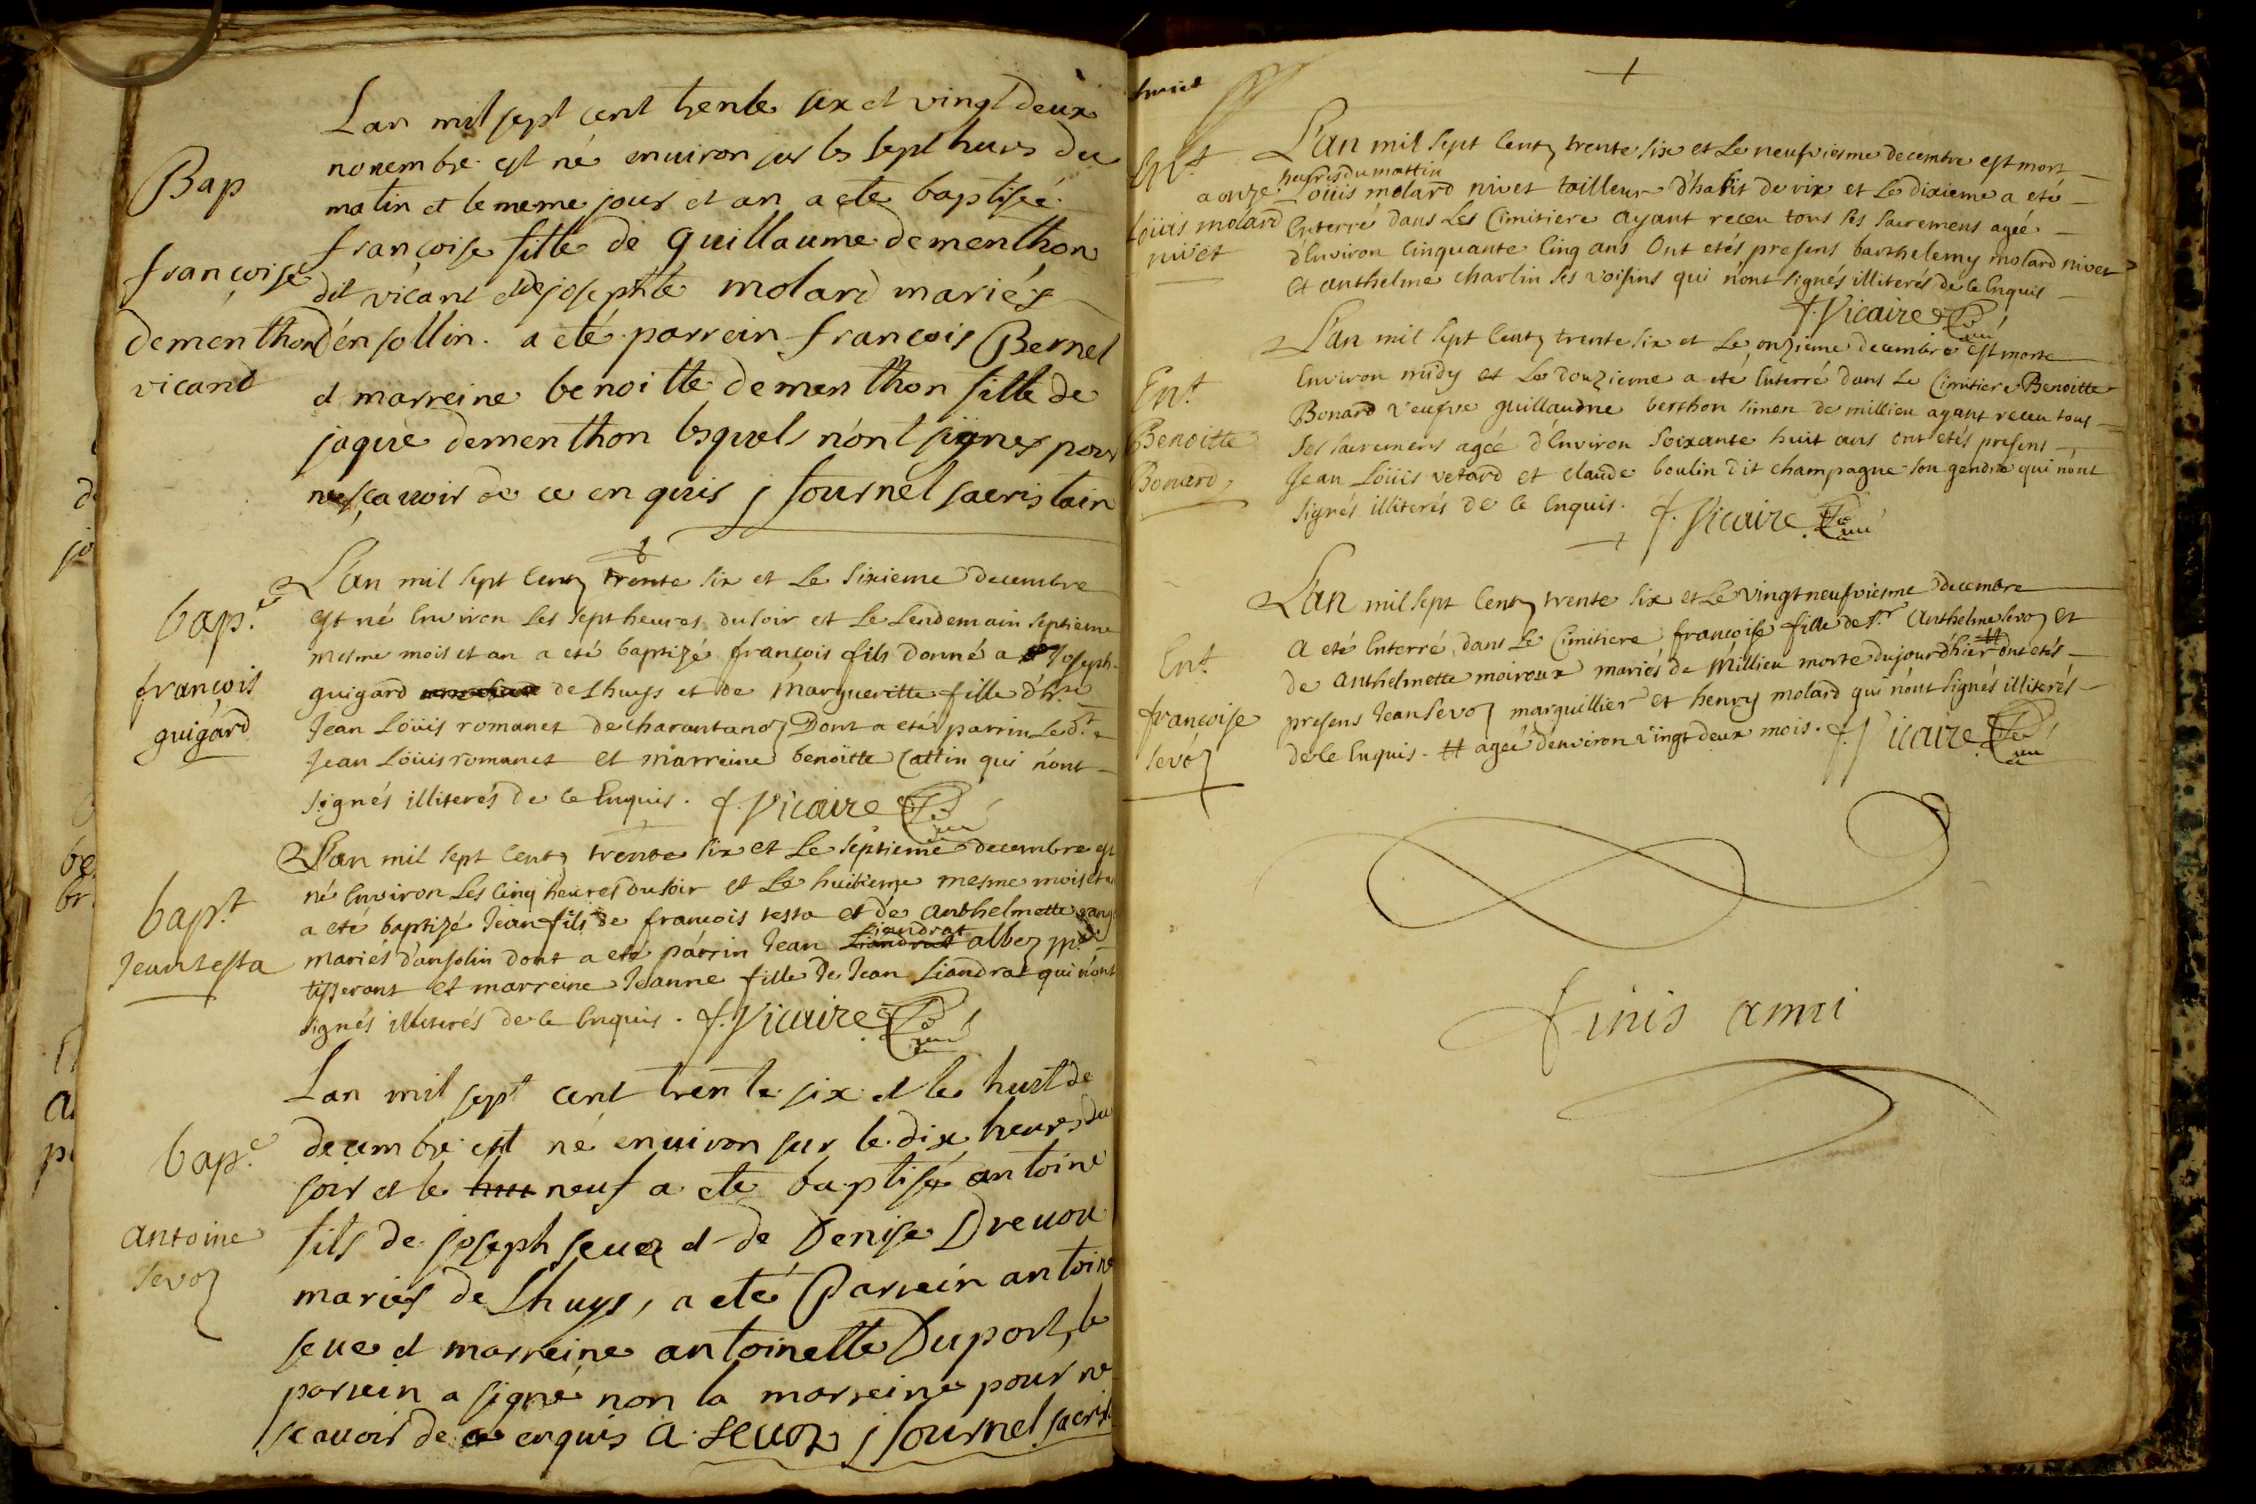 Bap
françoise
dementhon
vicand
Lan mil sept cent trente six et vingt deux
novembre est né enuiron sur les sept hures du
matin et le meme jour et an a eté baptisée
françoise fille de guillaume dementhon
dit vicant et de josephte molard mariés
d'ensollin. a eté parrein françois Bernel
et marreine benoitte dementhon fille de
jaque dementhon lesquels n'ont signes pour
ne sçauoir de ce enquis j fournel sacristain
bap.e
françois
guigard
L'an mil sept cent trente six et le sixieme decembre
est né Environ les sept heures du soir et le Lendemain septieme
mesme mois et an a eté baptizé françois fils donné a Joseph
guigard de Lhuys et de Margueritte fille d'h.e
Jean Loüis romanet de charantanoz Dont a eté parrin Le d.t
Jean Loüis romanet et marreine benoitte Cattin qui n'ont
signés illiterés de ce Enquis. f. Vicaire
bap.t
Jean testa
L'an mil sept cent trente six et le septieme decembre est
né Environ les cinq heures du soir et Le huitieme mesme mois et an
a eté baptizé Jean fils de francois testa et de anthelmette
mariés d'ansolin dont a eté parrin Jean Liandrat albez m.e
tisserant et marreine Jeanne fille de Jean Liandrat qui n'ont
signés illiterés de ce Enquis. f. Vicaire
bap.e
antoine
sevoz
Lan mil sept cent trente six et le huit de
decembre est né enuiron sur le dix heures du
soir et le neuf a eté baptisé antoine
fils de joseph seuoz et de Denise Dreuon
mariés de Lhuys, a eté Parrein antoine
seue et marreine antoinette Duport, le
parrein a signé non la marreine pour ne
scauoir de ce enquis a. seuoz j fournel sacrist
Ent.
Loüis molard
nivet
L'an mil sept cent trente six et Le neufviesme decembre est mort
a onze heures du mattin
Loüis molard nivet tailleur d'habit de vix et Le dixieme a eté
Enterré dans Les Cimitiere ayant receu tous ses sacremens ageé
d'Environ Cinquante Cinq ans Ont etés presens barthelemy molard nivet
et anthelme charlin ses voisins qui n'ont signés illiterés de ce Enquis
f. Vicaire
Ent.
Benoitte
Bonard
L'an mil sept cent trente six et Le onzieme decembre est morte
Environ midy et Le douzieme a eté Enterré dans Le Cimitiere Benoitte
Bonard veufve guillaudne berthon simon de millieu ayant receu tous
ses sacremens agée d'Environ Soixante huit ans ont etés presens
Jean Loüis vetard et claude boulin dit champagne son gendre qui n'ont
signés illiterés de ce Enquis. f. Vicaire
Ent.
françoise
sevoz
L'an mil sept cent trente six et Le vingt neufviesme decembre
A eté Enterré dans Le Cimitiere françoise fille de S.r Anthelme sevoz et
de anthelmette moiroux mariés de Millieu morte dujourd'hier # ont etés
presens Jean Sevoz marguillier et henry molard qui n'ont signés illiterés
de ce Enquis. # ageé d'environ vingt deux mois. f. Vicaire
finis anni